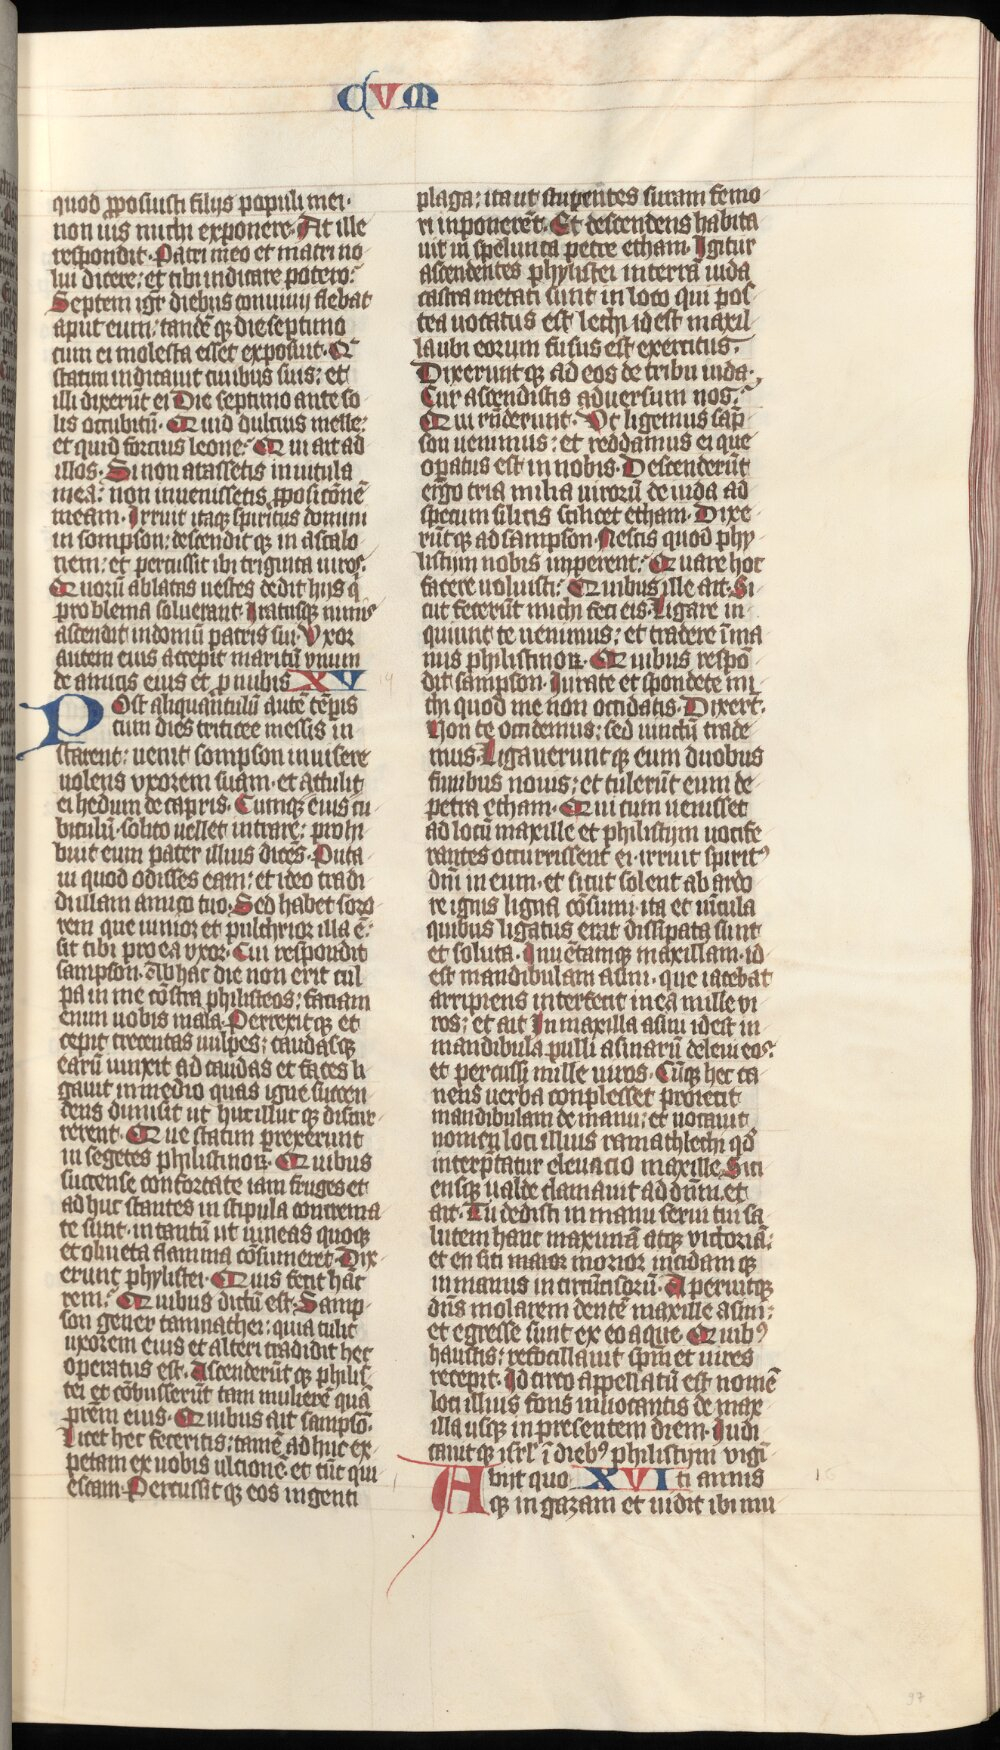 CVM
quod ꝓposuisti filijs populi mei·
non uis michi exponere· At ille
respondit· Patri meo et matri no
lui dicere; et tibi indicare potero?
Septem igr̄ diebus conuiuij flebat
aput eum; tandē qꝫ die septimo
cum ei molesta esset exposuit· Q̄
statim indicauit ciuibus suis; et
illi dixerūt ei Die septimo ante so
lis occubitū· Quid dulcius melle;
et quid forcius leone? Qui ait ad
illos· Si non arassetis in uitula
mea; non inuenissetis ꝓpositōnē
meam· Irruit itaqꝫ spiritus domini
in sompson; descendit qꝫ in ascalo
nem; et percussit ibi triginta uiros·
Quorū ablatas uestes dedit hijs q̇
problema soluerant· Iratusqꝫ nimis
ascendit in domū patris sui· Vxor
autem eius accepit maritū vnum
de amicis eius et pnubis XV
Post aliquantulū autē tēpis
cum dies triticee messis in
starent; uenit sompson inuisere
uolens vxorem suam· et attulit
ei hedum de capris· Cumqꝫ eius cu
biculū solito uellet intrare; prohi
buit eum pater illius dicēs· Puta
ui quod odisses eam; et ideo tradi
di illam amico tuo· Sed habet soro
rem que iunior et pulchrior illa ē;
sit tibi pro ea vxor· Cui respondit
sampson· Ab hac die non erit cul
pa in me cōstra philisteos; faciam
enim uobis mala· Perrexitqꝫ et
cepit trecentas uulpes; caudasqꝫ
earū uinxit ad caudas et faces li
gauit in medio quas igne succen
dens dimisit ut huc illuc qꝫ discur
rerent· Que statim prexerunt
in segetes philistinoꝝ· Quibus
succense conportate iam fruges et
ad huc stantes in stipula concrema
te sunt· intantū ut uineas quoqꝫ
et oliueta flamma cōsumeret· Dix
erunt phylistei· Quis fecit hāc
rem? Quibus dictū est· Samp
son gener tamnathei; quia tulit
uxorem eius et alteri tradidit hec
operatus est· Ascenderūt qꝫ philis
tei et cōbusserūt tam mulierē quā
prēm eius· Quibus ait sampsō·
Licet hec feceritis; tamē ad huc ex
petam ex uobis ulcionē· et tūc qui
escam· Percussit qꝫ eos ingenti
plaga; ita ut stupentes suram femo
ri inponerēt· Et descendens habita
uit in spelunca petre etham· Igitur
ascendentes phylistei in terrā iuda
castra metati sunt in loco qui pos
tea uocatus est lechi id est maxil
la ubi eorum fusus est exercitus·
Dixeruntqꝫ ad eos de tribu iuda·
Cur ascendistis aduersum nos?
Qui rn̄derunt· Vt ligemus sāp
son uenimus; et reddamus ei que
opatus est in nobis· Descenderūt
ergo tria milia uirorū de iuda ad
specum silicis scilicet etham· Dixe
rūtqꝫ ad sampson· Nescis quod phy
listiim nobis imperent; Quare hoc
facere uoluisti; Quibus ille ait· Si
cut fecerūt michi feci eis· Ligare in
quiunt te uenimus; et tradere ī ma
nus philistinoꝝ· Quibus respō
dit sampson· Iurate et spondete mi
chi quod me non occidatis· Dixerūt·
Non te occidemus; sed uinctū trade
mus· Ligaueruntqꝫ eum duobus
funibus nouis; et tulerūt eum de
petra etham· Qui cum uenisset
ad locū maxille et philistijm uocife
rantes occurrissent ei· irruit spiritꝰ
dn̄i in eum· et sicut solent ab ardo
re ignis ligna cōsumi· ita et uīcula
quibus ligatus erat dissipata sunt
et soluta· Inuētamqꝫ maxillam· id
est mandibulam asini· que iacebat
arripiens interfecit in ea mille vi
ros; et ait In maxilla asini id est in
mandibula pulli asinarū deleui eos;
et percussi mille uiros· Cūqꝫ hec ca
nens uerba conplesset proiecit
mandibulam de manu; et uocauit
nomen loci illius ramathlechi qd̄
interp̄tatur eleuacio maxille· Siti
ensqꝫ ualde clamauit ad dn̄m· et
ait· Tu dedisti in manu serui tui sa
lutem hanc maximā atqꝫ victoriā;
et en siti maior morior incidam qꝫ
in manus incircūcisorū· Aperuitqꝫ
dn̄s molarem dentē maxille asini;
et egresse sunt ex eo aque· Quibꝰ
haustis; refocillauit spm̄ et uires
recepit· Idcirco appellatū est nomē
loci illius fons inuocantis de max
illa usqꝫ in presentem diem· Iudi
cauitqꝫ isrl̄ ī diebꝰ philistijm vigī
Abijt quo XVI ti annis
qꝫ in gazam et uidit ibi mu
97